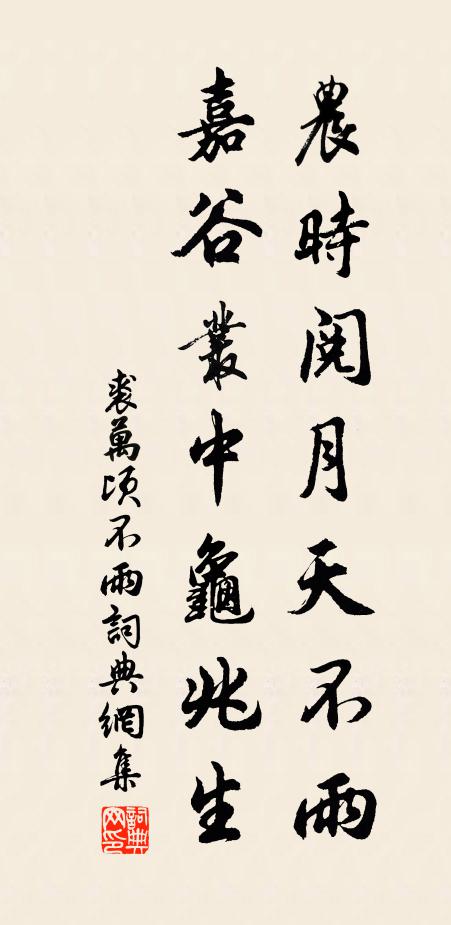 農時閱月天不雨
嘉谷叢中龜兆生
裘萬頃不雨詞典網集
詞典网印